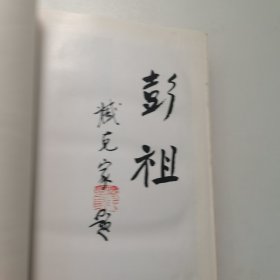 彭祖
臧克家题